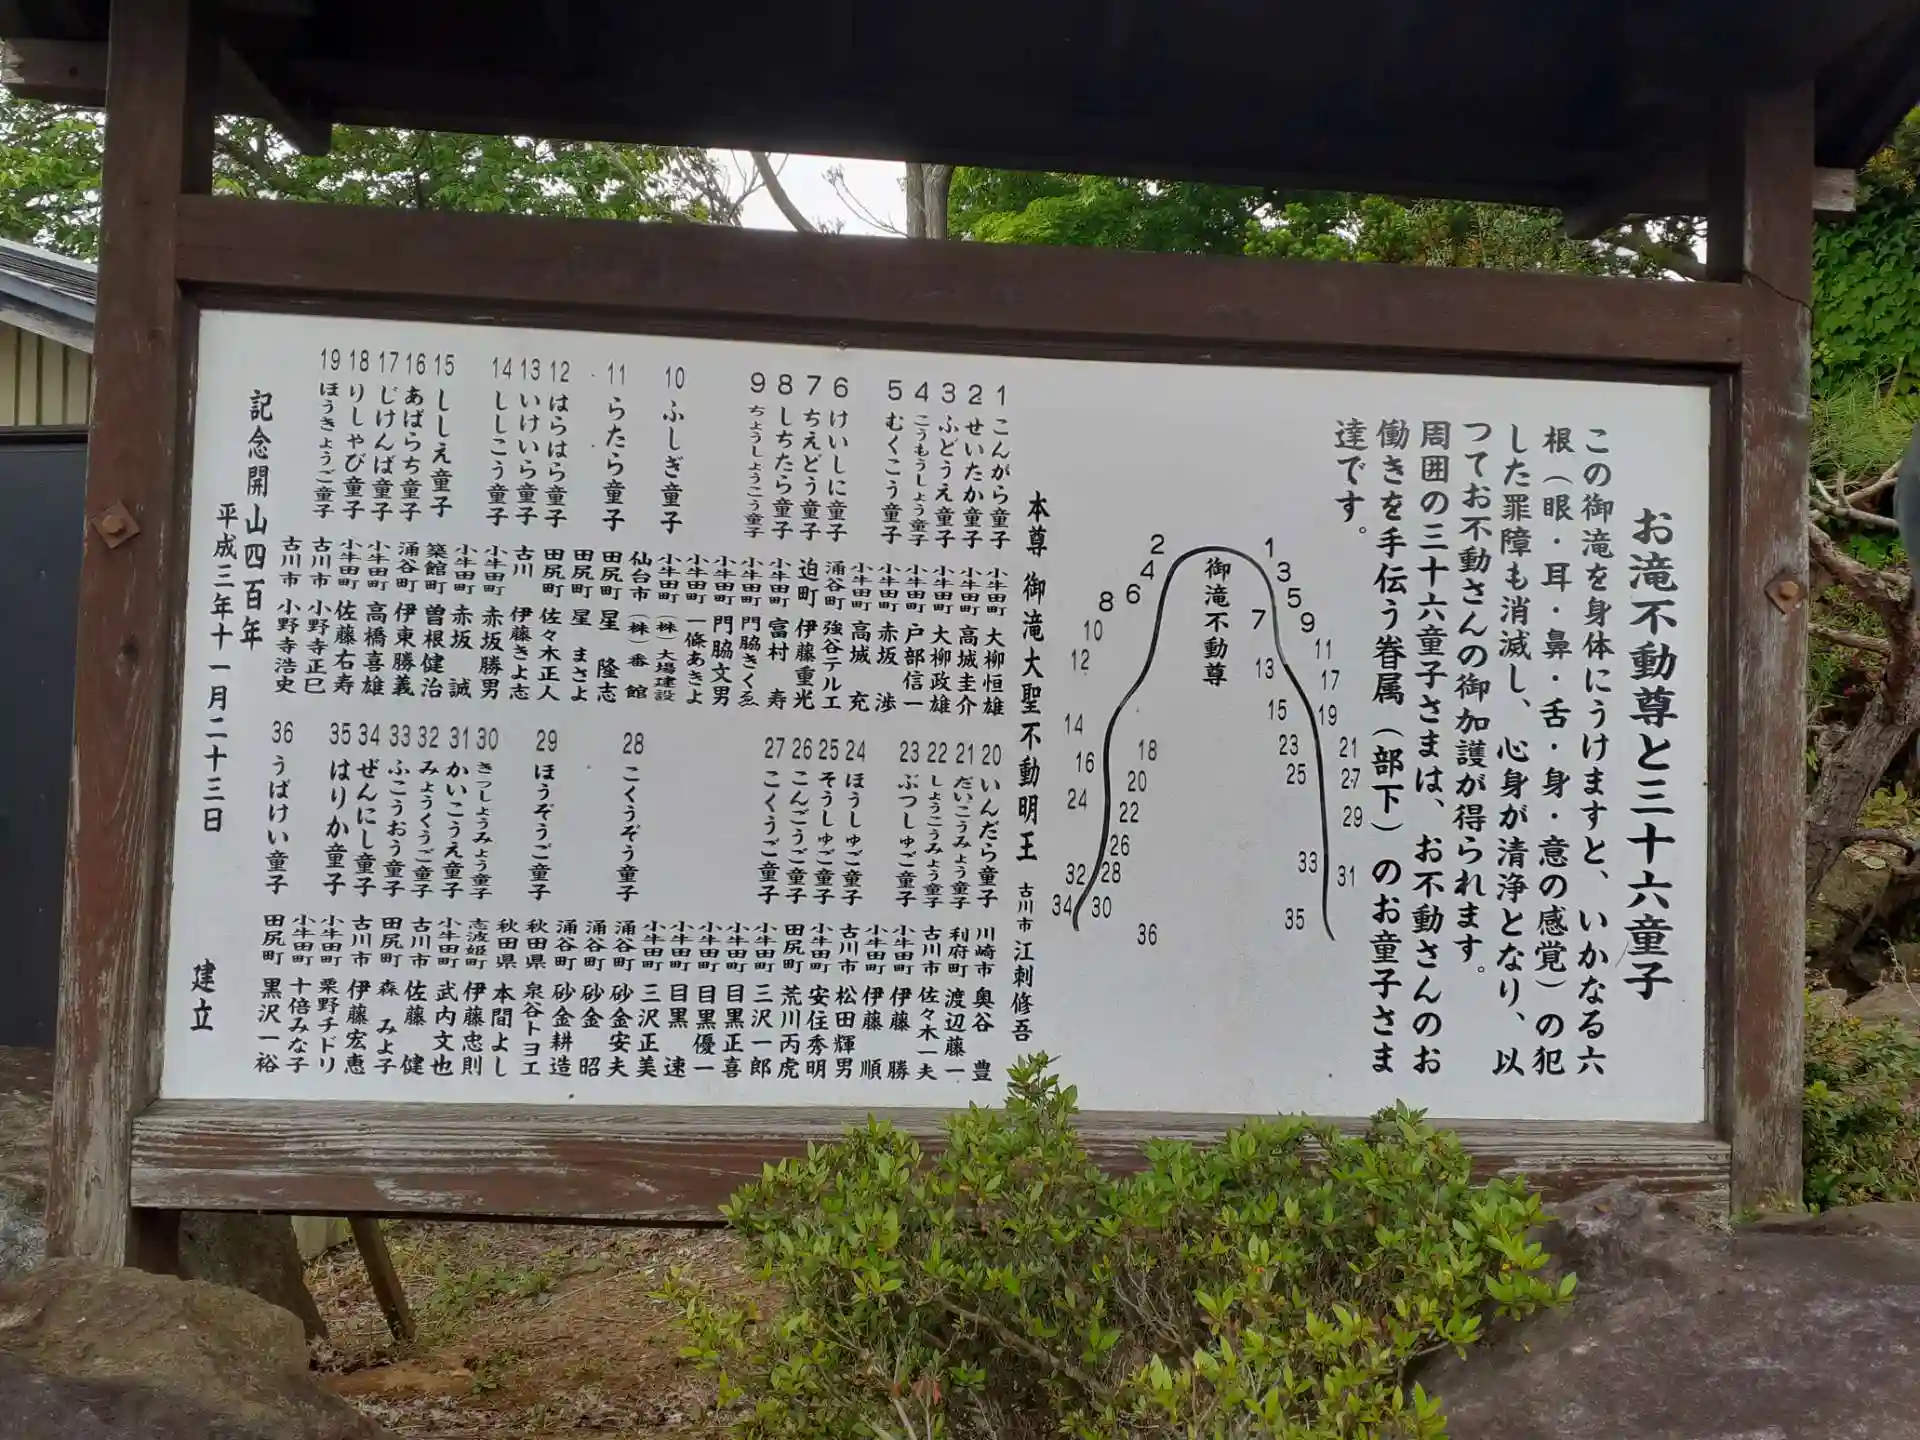 お滝不動尊と三十六童子
この御滝を身体にうけますと、いかなる六
根（眼・耳・鼻・舌・身・意の感覚）の犯
した罪障も消滅し、心身が清浄となり、以
つてお不動さんの御加護が得られます。
周囲の三十六童子さまは、お不動さんのお
働きを手伝う眷属（部下）のお童子さま
達です。
御滝不動尊
1
3
5
7
9
11
13
17
15
19
23
21
25
27
29
33
31
35
2
4
6
8
10
12
14
16
18
20
24
22
26
32
28
34
30
36
本尊 御滝大聖不動明王 古川市 江刺修吾
1 こんがら童子 小牛田町 大柳恒雄
2 せいたか童子 小牛田町 高城圭介
3 ふどうえ童子 小牛田町 大柳政雄
4 こうもうしょう童子 小牛田町 戸部信一
5 むくこう童子 小牛田町 赤坂 渉
小牛田町 高城 充
6 けいしに童子 涌谷町 強谷テルエ
7 ちえどう童子 迫町 伊藤重光
8 しちたら童子 小牛田町 富村 寿
9 ちょうしょうこう童子 小牛田町 門脇きくゑ
小牛田町 門脇文男
小牛田町 一條あきよ
10 ふしぎ童子 小牛田町 （株）大場建設
仙台市 （株）一番館
11 らたら童子 田尻町 星 隆志
田尻町 星 まさよ
12 はらはら童子 田尻町 佐々木正人
13 いけいら童子 古川 伊藤きよ志
14 ししこう童子 小牛田町 赤坂勝男
小牛田町 赤坂 誠
15 ししえ童子 築館町 曽根健治
16 あばらち童子 涌谷町 伊東勝義
17 じけんば童子 小牛田町 高橋喜雄
18 りしゃび童子 小牛田町 佐藤右寿
19 ほうきょうご童子 古川市 小野寺正巳
古川市 小野寺浩史
20 いんだら童子 川崎市 奥谷 豊
21 だいこうみょう童子 利府町 渡辺藤一
22 しょうこうみょう童子 古川市 佐々木一夫
23 ぶつしゅご童子 小牛田町 伊藤 勝
小牛田町 伊藤 順
24 ほうしゅご童子 古川市 松田輝男
25 そうしゅご童子 小牛田町 安住秀明
26 こんごうご童子 田尻町 荒川丙虎
27 こくうご童子 小牛田町 三沢一郎
小牛田町 目黒正喜
小牛田町 目黒優一
小牛田町 目黒 速
小牛田町 三沢正美
28 こくうぞう童子 涌谷町 砂金安夫
涌谷町 砂金 昭
涌谷町 砂金耕造
29 ほうぞうご童子 秋田県 泉谷トヨエ
秋田県 本間よし
30 きつしょうみょう童子 志波姫町 伊藤忠則
31 かいこうえ童子 小牛田町 武内文也
32 みょうくうご童子 古川市 佐藤 健
33 ふこうおう童子 田尻町 森 みよ子
34 ぜんにし童子 古川市 伊藤宏惠
35 はりか童子 小牛田町 栗野チドリ
小牛田町 十倍みな子
36 うばけい童子 田尻町 黒沢一裕
記念開山四百年
平成三年十一月二十三日 建立